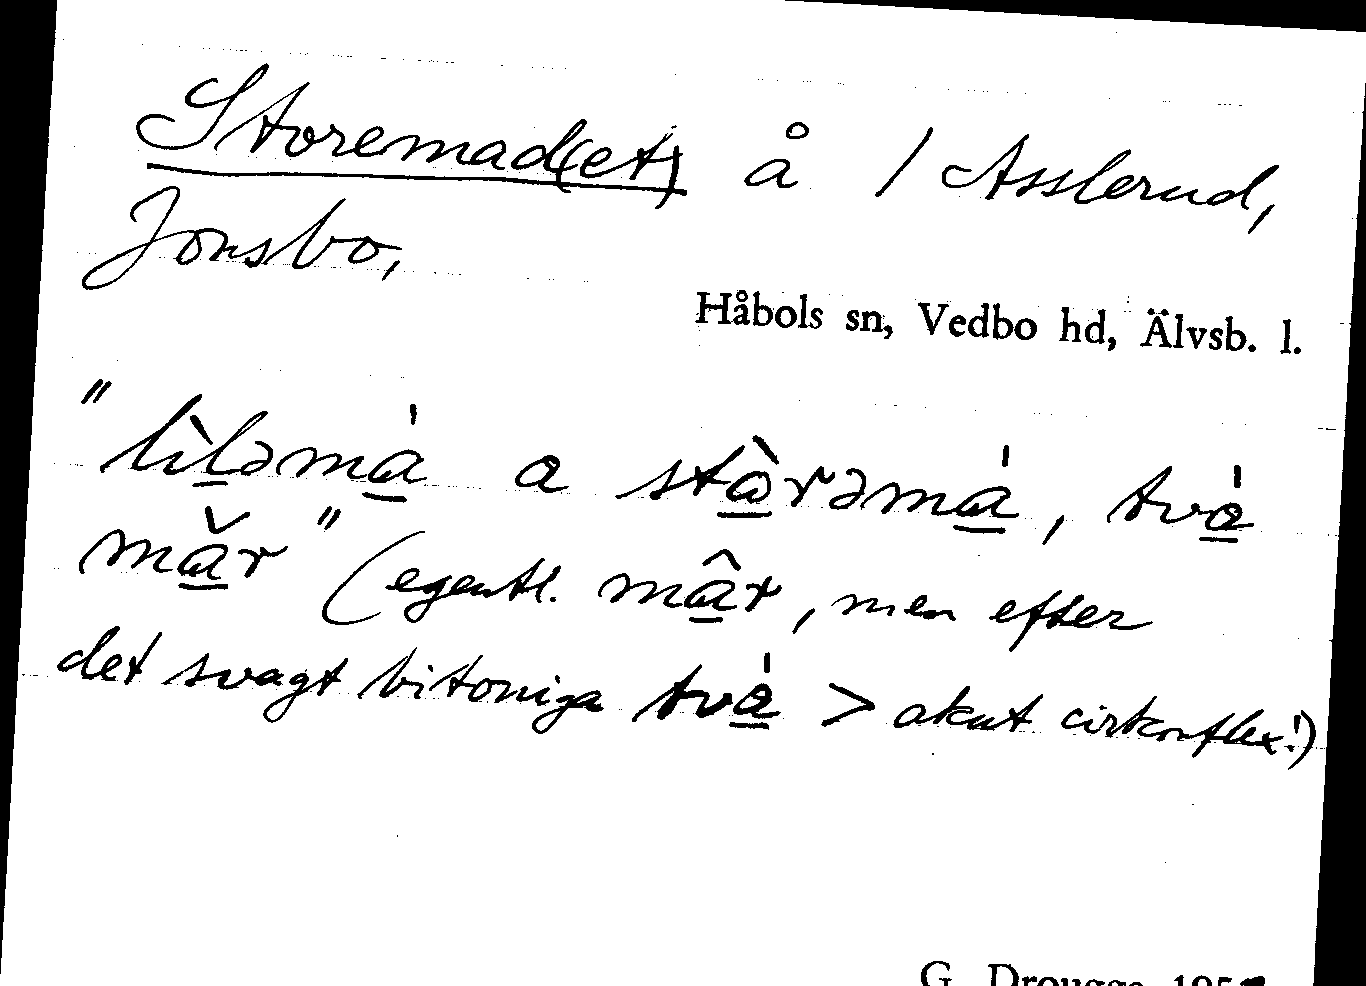 Storemad(et) å / Asslerud,
Jonsbo,
Håbols sn, Vedbo hd, Älvsb. l.
"lìl̲əmá̲ a stà̲rəmá̲, tvǻ̲
mǎ̲r" (egentl. mâ̲r, men efter
det svagt bitoniga tvǻ̲ > akut cirkonflex!)
G. Drougge